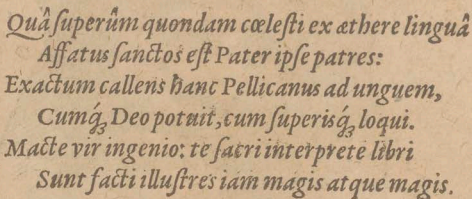 Quâ ſuperûm quondam cœleſti ex æthere linguâ
Affatus ſanctos eſt Pater ipſe patres:
Exactum callens hanc Pellicanus ad unguem,
Cumq́ꝫ Deo potuit, cum ſuperisq́ꝫ loqui.
Macte vir ingenio: te ſacri interprete libri
Sunt facti illuſtres iam magis atque magis.